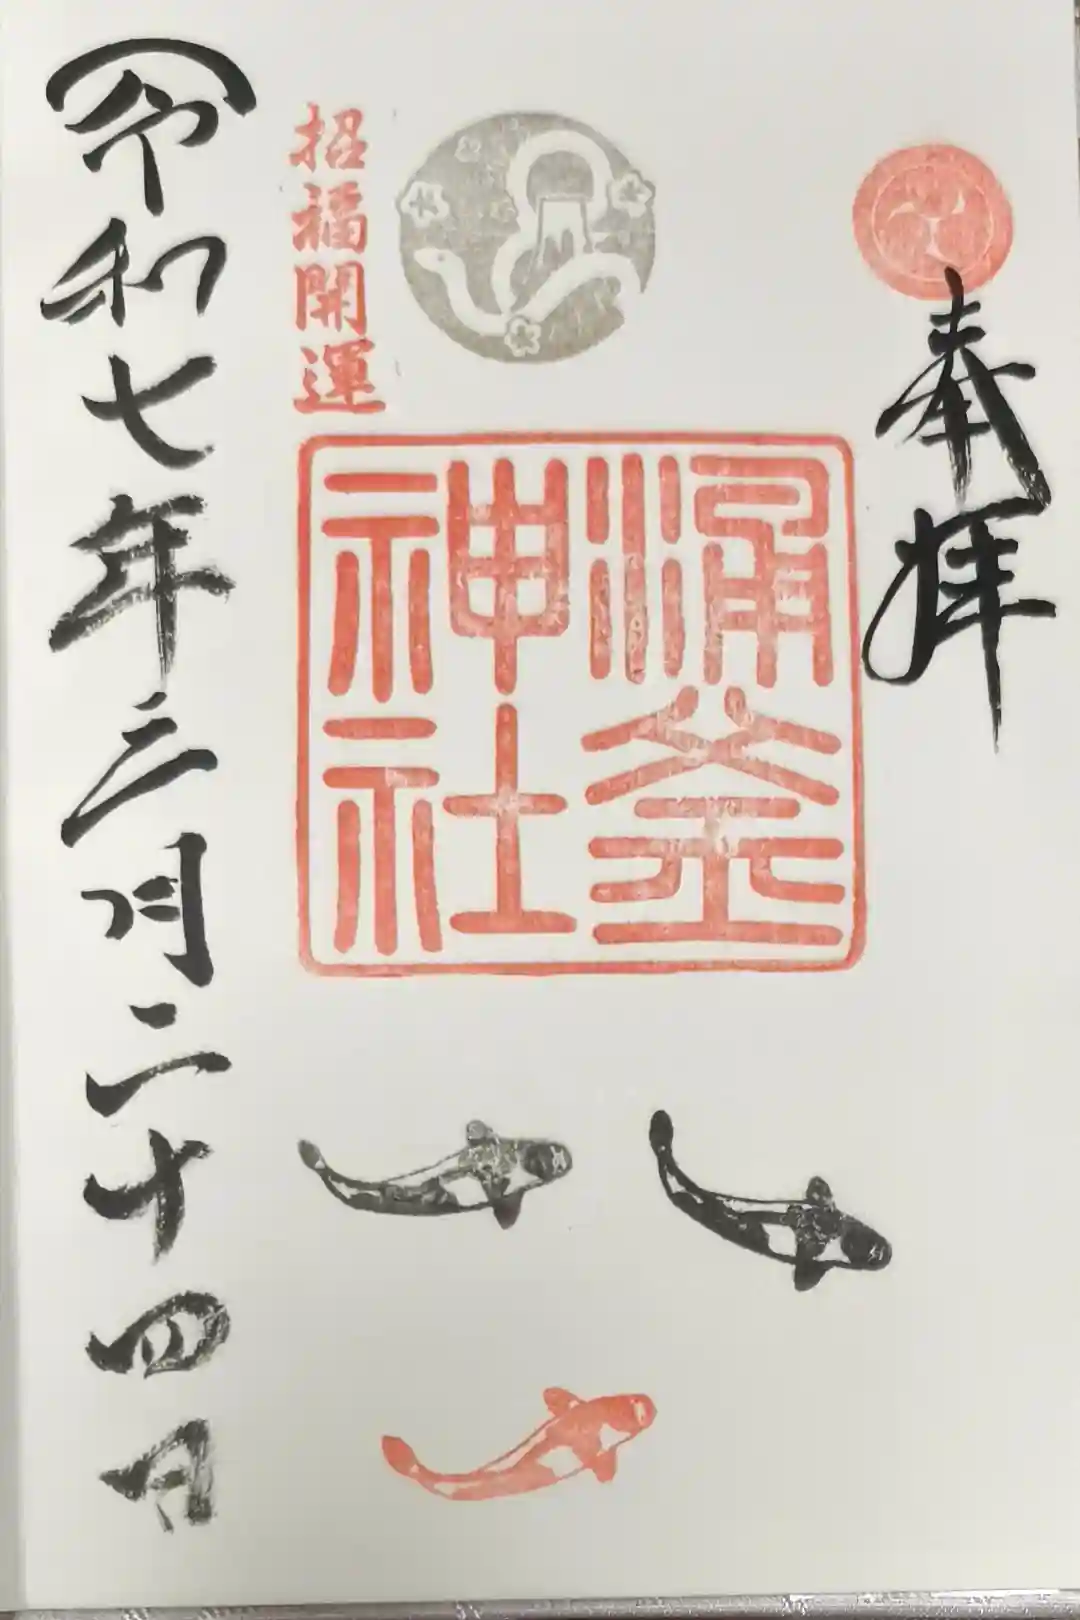 奉拝
涌釜
神社
招福開運
令和七年三月二十四日